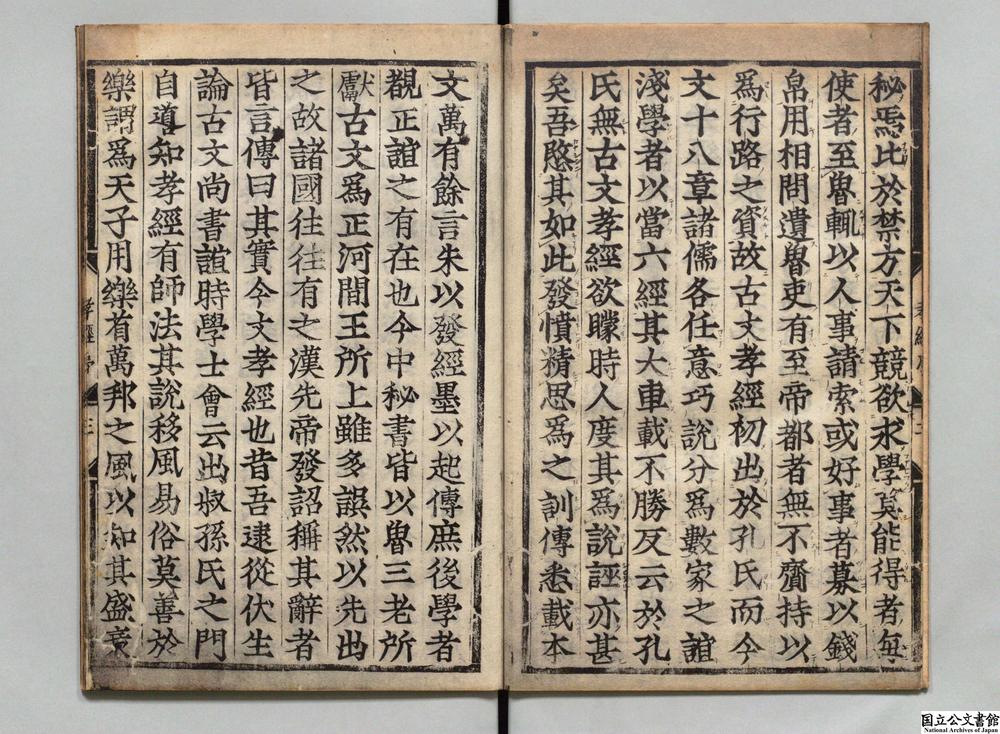 秘焉比於禁方天下競欲求學莫能得者每
使者至魯輒以人事請索或好事者募以錢
帛用相問遺魯吏有至帝都者無不齎持以
爲行路之資故古文孝經初出於孔氏而今
文十八章諸儒各任意巧說分爲數家之誼
淺學者以當六經其大車載不勝反云於孔
氏無古文孝經欲矇時人度其爲說誣亦甚
矣吾愍其如此發憤精思爲之訓傳悉載本
文萬有餘言朱以發經墨以起傳庶後學者
覩正誼之有在也今中秘書皆以魯三老所
獻古文爲正河間王所上雖多誤然以先出
之故諸國往往有之漢先帝發詔稱其辭者
皆言傳曰其實今文孝經也昔吾逮從伏生
論古文尚書誼時學士會云出叔孫氏之門
自道知孝經有師法其說移風易俗莫善於
樂謂爲天子用樂省萬邦之風以知其盛衰
孝經序 三
国立公文書館
National Archives of Japan